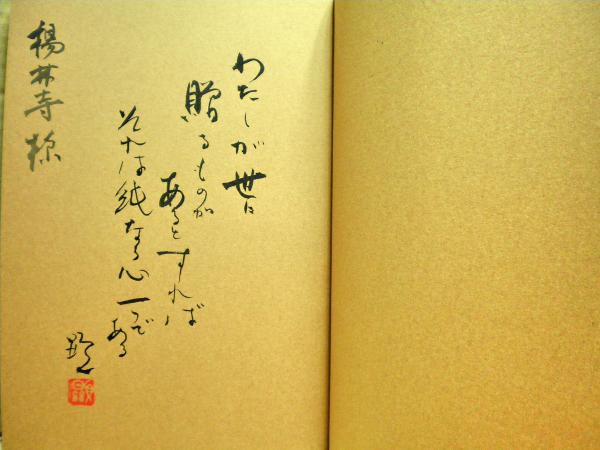 わたしが世に
贈るものが
あるとすれば
それは純なる心一つで
ある
楊林寺様